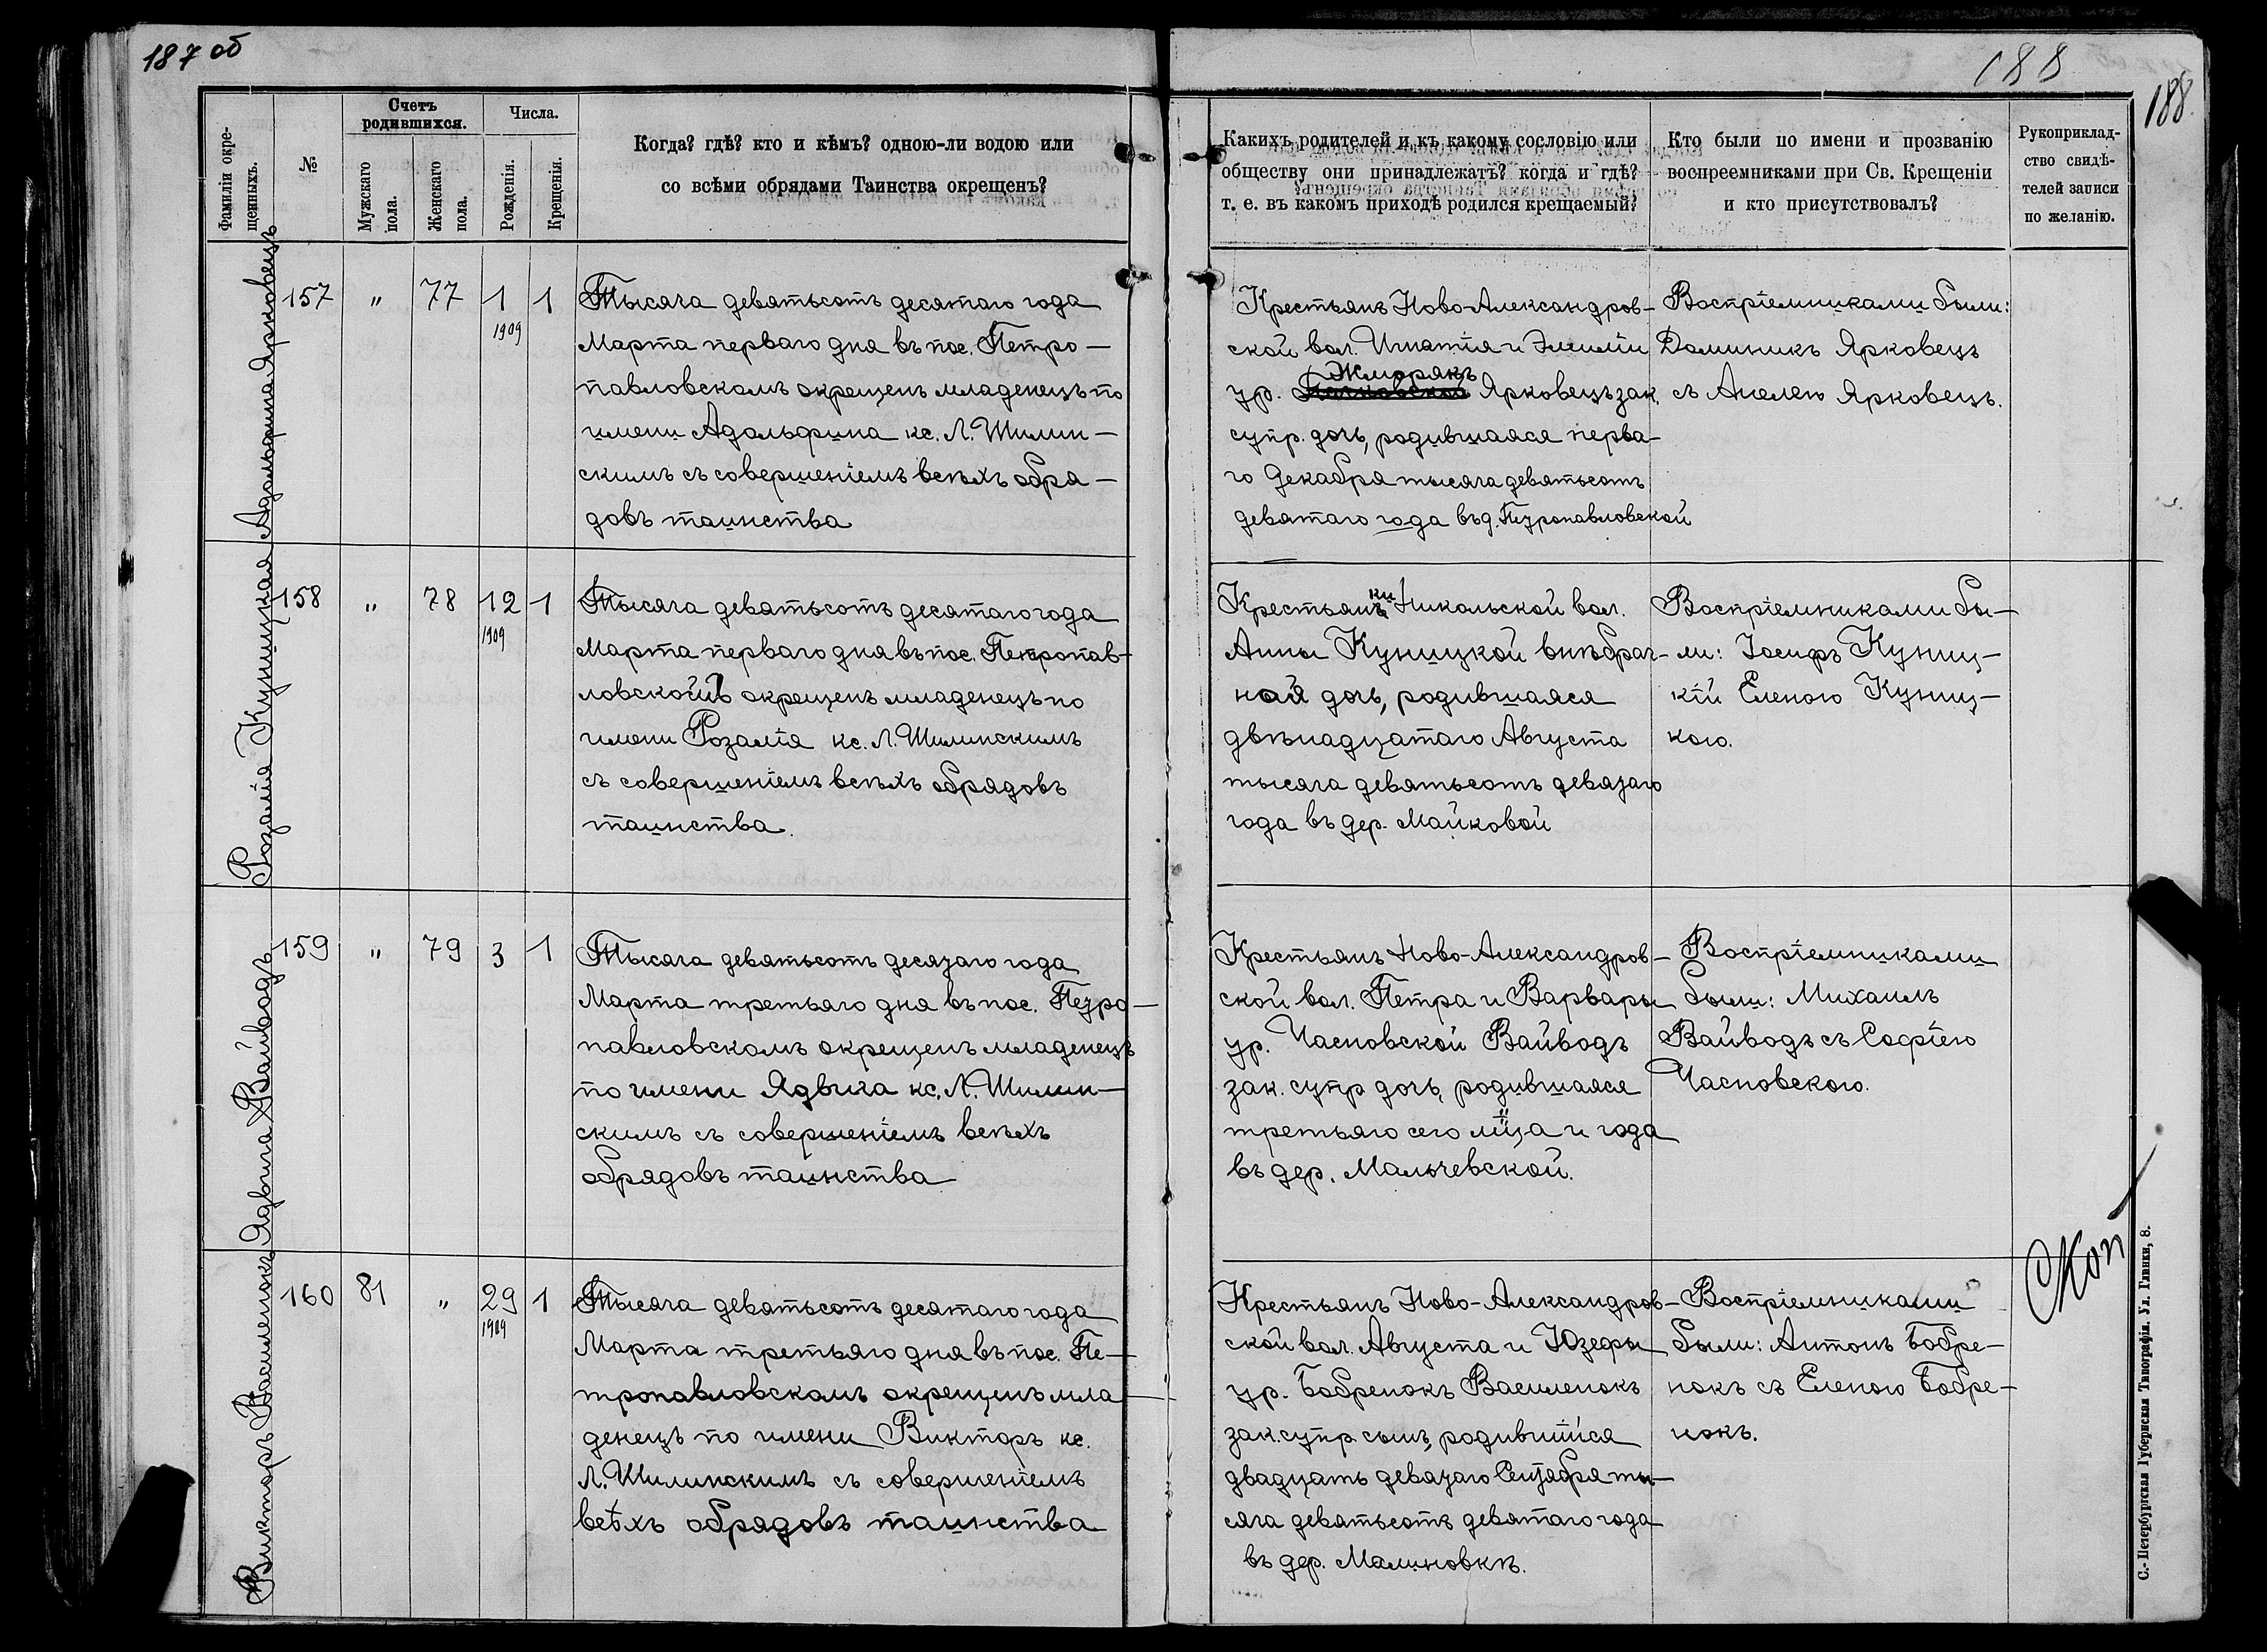 187 об
188
188.
Фамиліи окре-
щенныхъ.
№
Счетъ
родившихся.
Мужскаго
пола.
Женскаго
пола.
Числа.
Рожденія.
Крещенія.
Когда? гдѣ? кто и кѣмъ? одною-ли водою или
со всѣми обрядами Таинства окрещенъ?
Какихъ родителей и къ какому сословію или
обществу они принадлежатъ? когда и гдѣ?
т. е. въ какомъ приходѣ родился крещаемый?
Кто были по имени и прозванію
воспреемниками при Св. Крещеніи
и кто присутствовалъ?
Рукоприклад-
ство свидѣ-
телей записи
по желанію.
Адольфина Ярковецъ
157 " 77 1 1
1909
Тысяча девятьсотъ десятаго года
Марта перваго дня въ пос. Петро-
павловскомъ окрещенъ младенецъ по
имени Адольфина кс. Л. Шилин-
скимъ съ совершеніемъ всѣхъ обря-
довъ таинства
Крестьянъ Ново-Александров-
ской вол. Игнатія и Эмиліи
Жморякъ
ур. Ярковецъ зак.
супр. дочь, родившаяся перва-
го Декабря тысяча девятьсотъ
девятаго года въ д. Петропавловской
Воспріемниками были:
Доминикъ Ярковецъ
съ Анелею Ярковецъ.
Розалія Куницкая
158 " 78 12 1
1909
Тысяча девятьсотъ десятаго года
Марта перваго дня въ пос. Петропав-
ловскомъ окрещенъ младенецъ по
имени Розалія кс. Л. Шилинскимъ
съ совершеніемъ всѣхъ обрядовъ
таинства.
ки
Крестьянъ Никольской вол.
Анны Куницкой внѣбрач-
ная дочь, родившаяся
двѣнадцатаго Августа
тысяча девятьсотъ девятаго
года въ дер. Майковой
Воспріемниками бы-
ли: Іосифъ Куниц-
кій Еленою Куниц-
кою.
Ядвига Вайводъ
159 " 79 3 1
Тысяча девятьсотъ десятаго года
Марта третьяго дня въ пос. Петро-
павловскомъ окрещенъ младенецъ
по имени Ядвига кс. Л. Шилин-
скимъ съ совершеніемъ всѣхъ
обрядовъ таинства
Крестьянъ Ново-Александров-
ской вол. Петра и Варвары
ур. Часновской Вайводъ
зак. супр дочь, родившаяся
третьяго сего мца и года
въ дер. Мальчевской.
Воспріемниками
были: Михаилъ
Вайводъ съ Софіею
Часновскою.
Викторъ Василенокъ
160 81 " 29 1
1909
Тысяча девятьсотъ десятаго года
Марта третьяго дня въ пос. Пе-
тропавловскомъ окрещенъ мла-
денецъ по имени Викторъ кс.
Л. Шилинскимъ съ совершеніемъ
всѣхъ обрядовъ таинства
Крестьянъ Ново-Александров-
ской вол. Августа и Юзефы
ур. Бобренокъ Василенокъ
зак. супр сынъ, родившійся
двадцать девятаго Сентября ты-
сяча девятьсотъ девятаго года
въ дер. Малиновкѣ.
Воспріемниками
были: Антонъ Бобре-
нокъ съ Еленою Бобре-
нокъ.
С.-Петербургская Губернская Типографія. Ул. Глинки, 8.